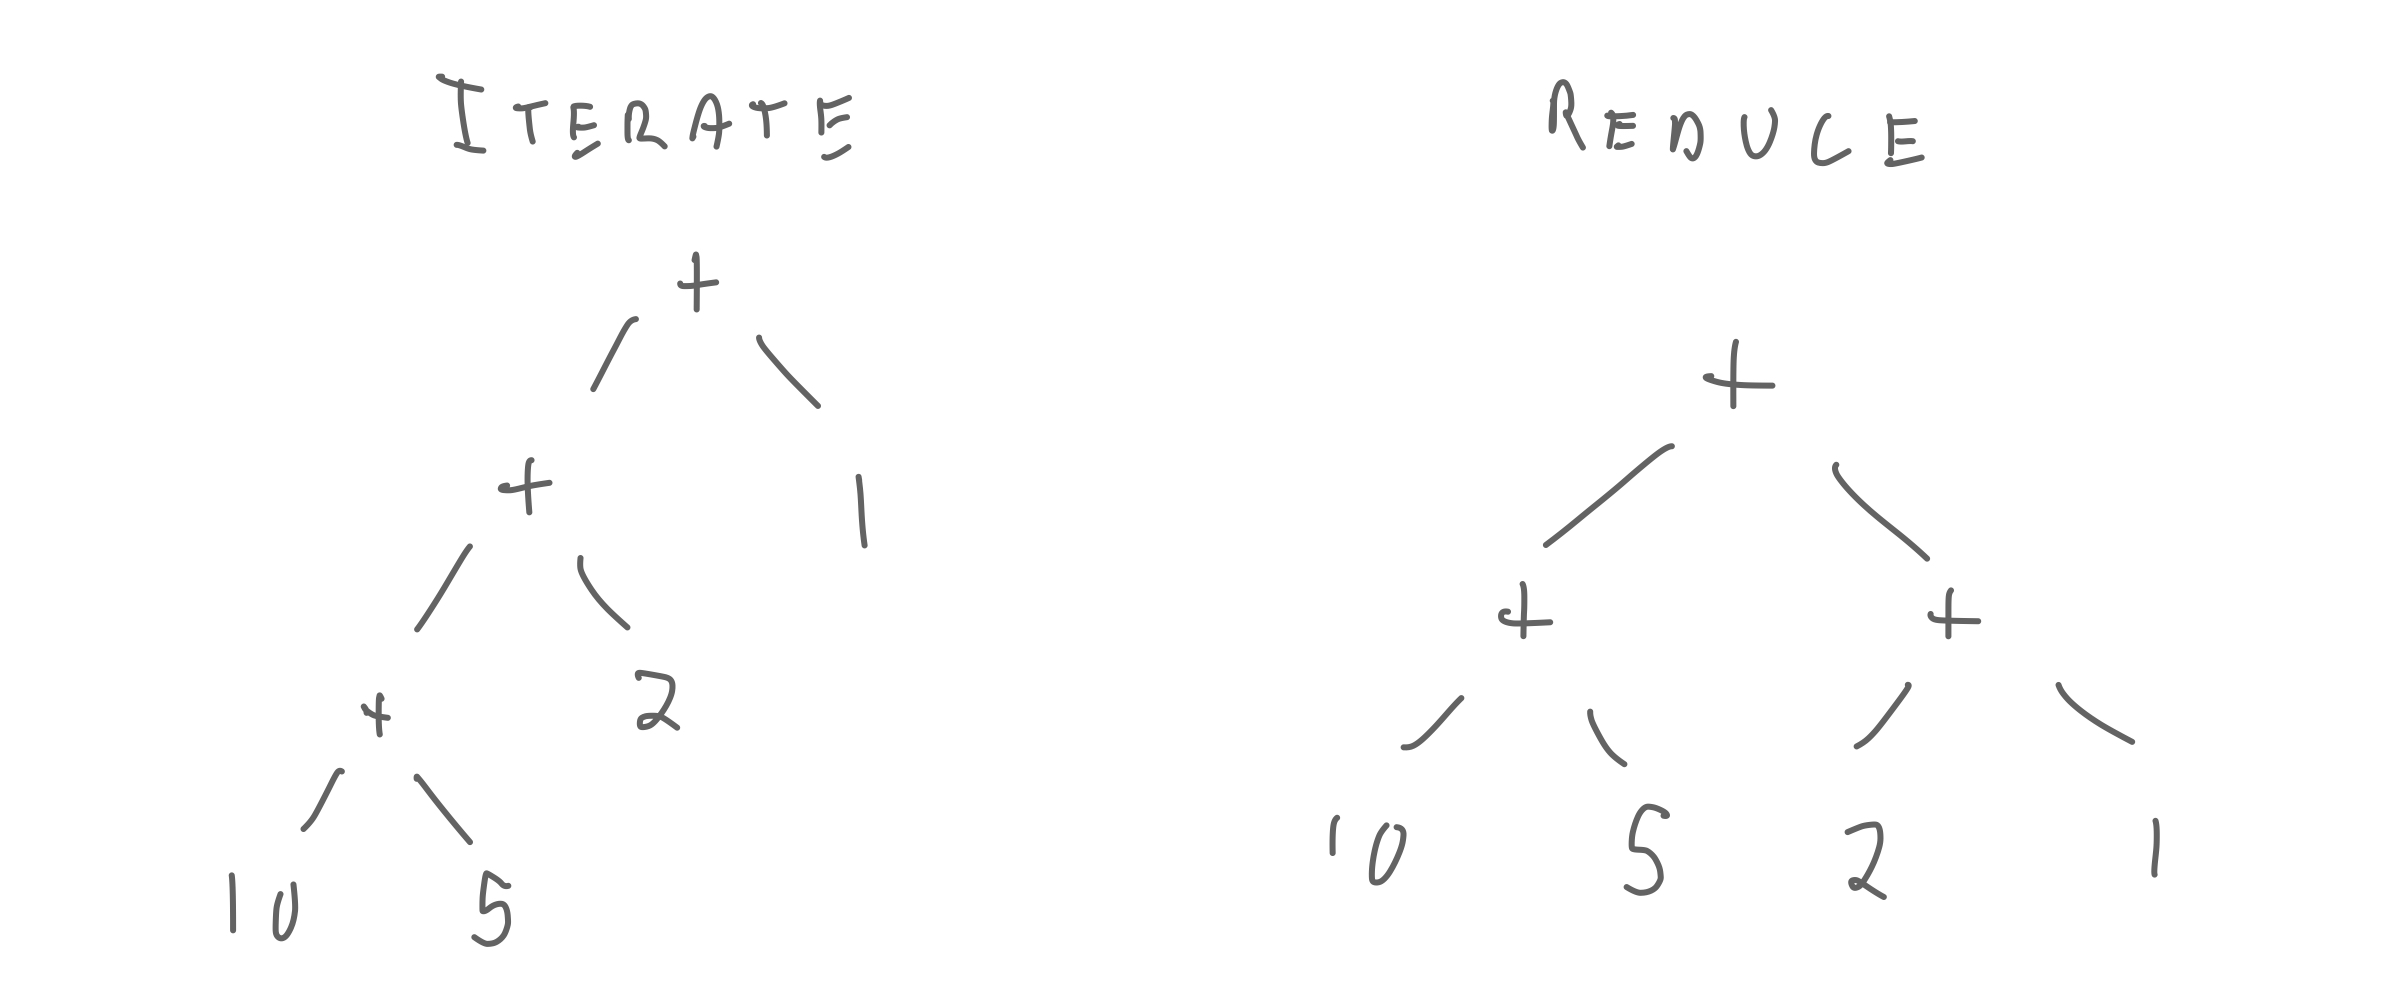 ITERATE
+
+ 1
+ 2
10 5
REDUCE
+
+ +
10 5 2 1